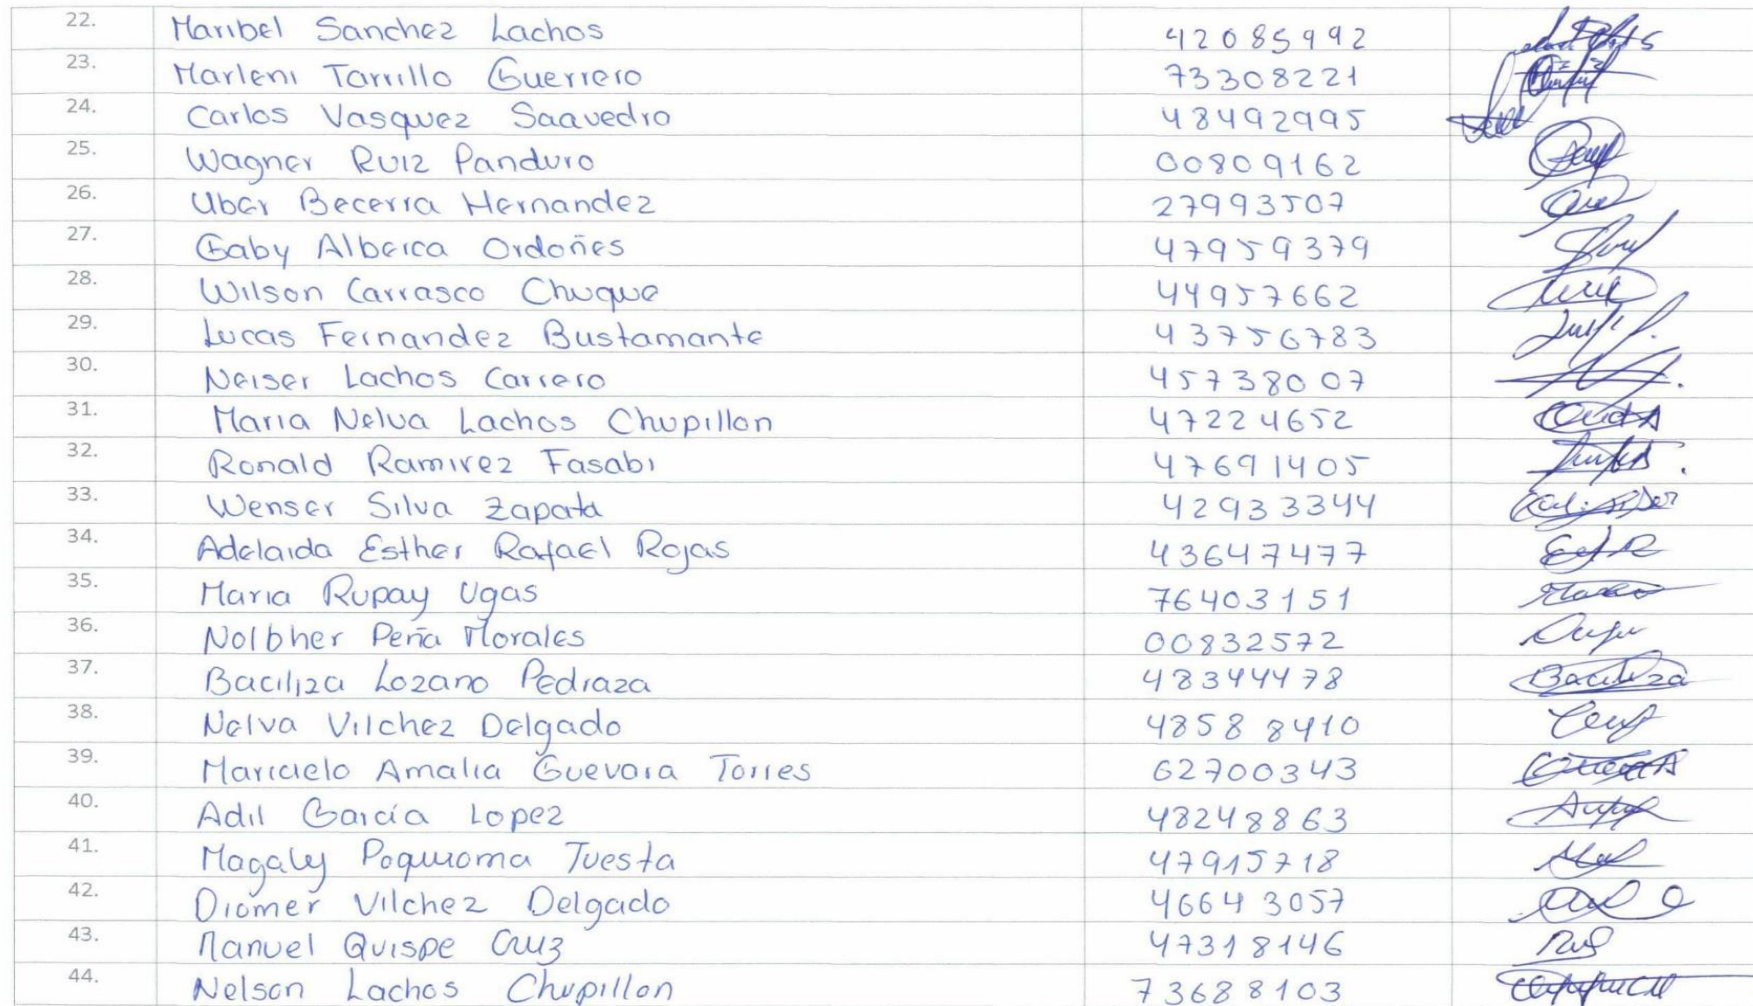 22. Maribel Sanchez Lachos 42085992
23. Marleni Tarrillo Guerrero 73308221
24. Carlos Vasquez Saavedra 48492995
25. Wagner Ruiz Panduro 00809162
26. Uber Becerra Hernandez 27993507
27. Gaby Alberca Ordoñes 47959379
28. Wilson Carrasco Chuque 44957662
29. Lucas Fernandez Bustamante 43756783
30. Neiser Lachos Carrero 45738007
31. Maria Nelva Lachos Chupillon 47224652
32. Ronald Ramirez Fasabi 47691405
33. Wenser Silva Zapata 42933344
34. Adelaida Esther Rafael Rojas 43647477
35. Maria Rupay Ugas 76403151
36. Nolbher Peña Morales 00832572
37. Baciliza Lozano Pedraza 48344478 Baciliza
38. Nelva Vilchez Delgado 48588410
39. Maricielo Amalia Guevara Torres 62700343
40. Adil García Lopez 48248863
41. Magaly Poquioma Tuesta 47915718
42. Diomer Vilchez Delgado 46643057
43. Manuel Quispe Cruz 47318146
44. Nelson Lachos Chupillon 73688103